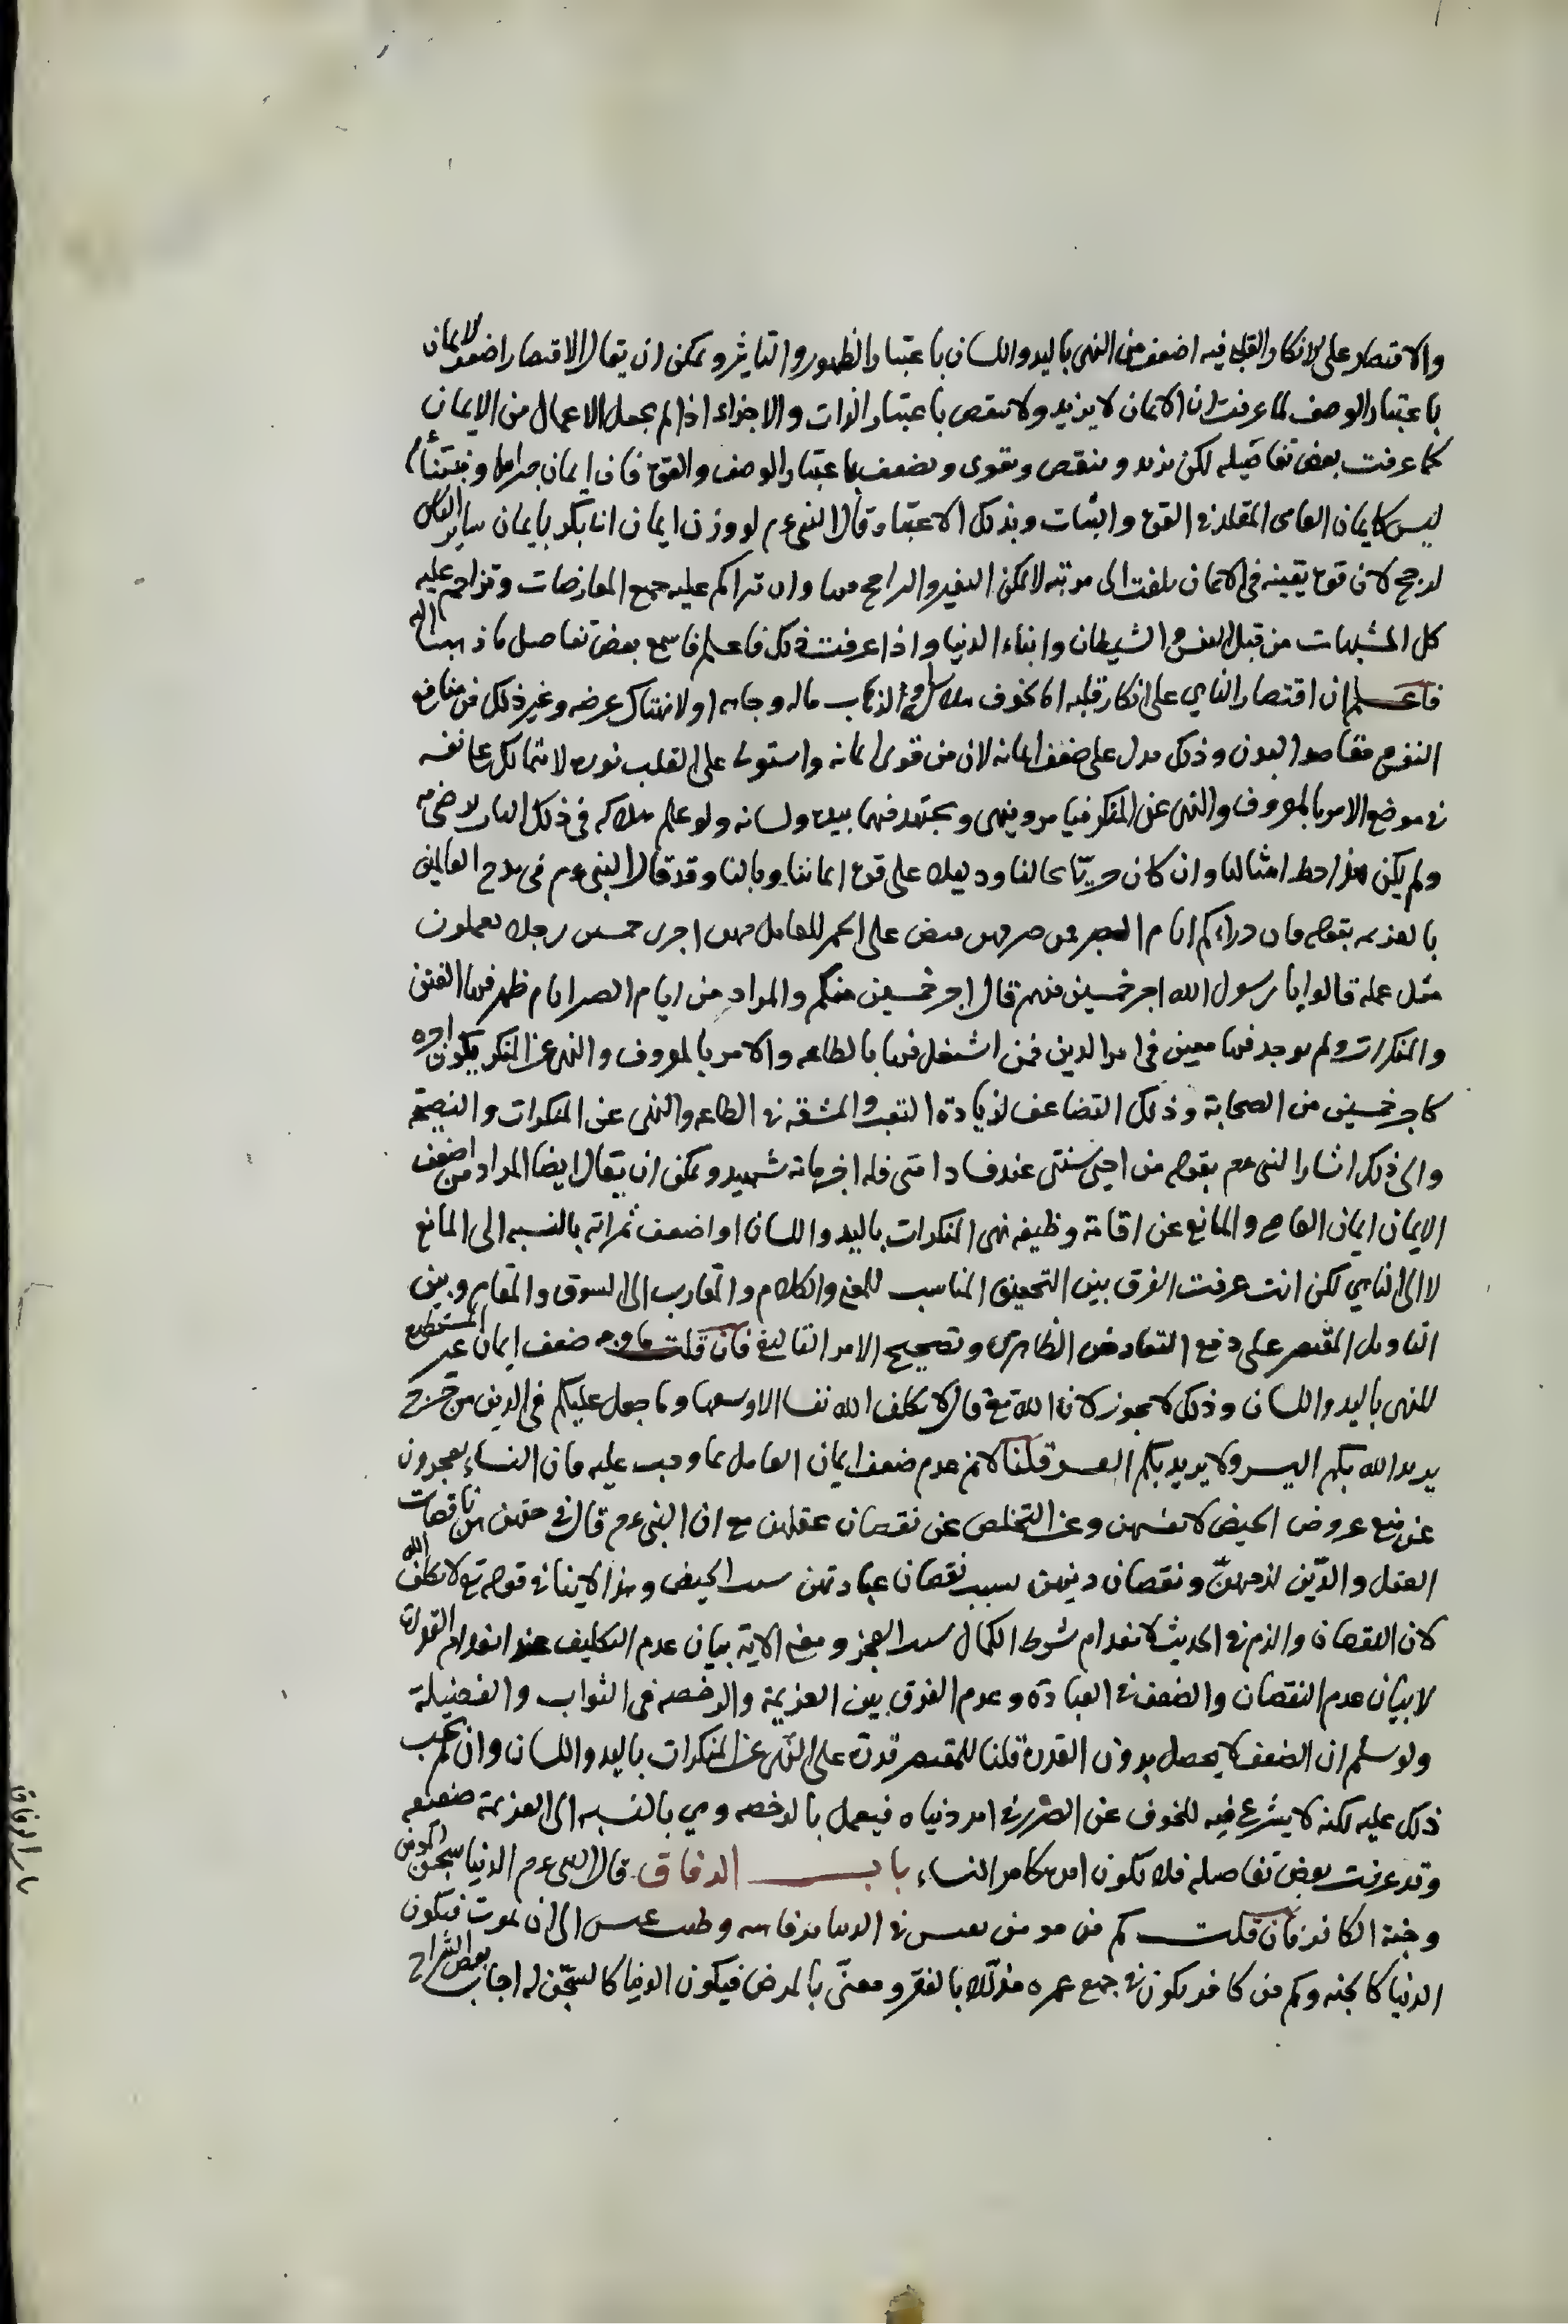 والاقتصار على الانكار القلبي فيه اضعف من النهى باليد واللسان باعتبار الظهور والتاثير ويمكن ان يقال الاقتصار اضعف الايمان
باعتبار الوصف لما عرفت ان الايمان لا يزيد ولا ينقص باعتبار الذات والاجزاء اذا لم يجعل الاعمال من الايمان
كما عرفت بعض تفاصيله لكن يزيد وينقص ويقوى ويضعف باعتبار الوصف والقوة فان ايمان
ليس كايمان العامى المقلد فى القوة والثبات وبذلك الاعتبار قال النبى عم لو وزن ايمان ابا بكر بايمان ساير الكل
لرجح لان قوة يقينه فى الايمان بلغت الى مرتبه لا يمكن التغير والراجح فيها وان تراكم عليه جميع المعارضات وتزاحم عليه
كل المشبهات من قبل النفس والشيطان وابناء الدنيا واذا عرفت ذلك فاعلم فاسمع بعض تفاصيل ما ذهبنا اليه
فاعلم ان اقتصار الناهي على انكار قلبه اما لخوف هلاك او الذهاب ماله وجاهه او لانهتاك عرضه وغير ذلك من منافع
النفس مقاصد البدن وذلك يدل على ضعف ايمانه لان من قوى ايمانه واستولى على القلب نوره لا يتمالك على نفسه
فى موضع الامر بالمعروف والنهى عن المنكر فيامر وينهى ويجتهد فيهما بيده ولسانه ولو علم هلاكه فى ذلك الباب لا
ولم يكن هذا حظ امثالنا وان كان حريّا بحالنا ودليلا على قوة ايماننا وبالنا وقد قال النبى عم فى مدح العاملين
بالعزيمة بقوله فان وراءكم ايام الصبر فمن صبر فيهن قبض على الجمر للعامل فيهن اجر خمسين رجلا يعملون
مثل عمله قالوا يا رسول الله اجر خمسين منهم قال اجر خمسين منكم والمراد من ايام الصبر ايام ظهر فيها الفتن
والمنكرات ولم يوجد فيها معين فى امر الدين فمن اشتغل فيها بالطاعه والامر بالمعروف والنهى عن المنكر يكون اجره
كاجر خمسين من الصحابة وذلك التضاعف لزيادة التعب والمشقه فى الطاعه والنهى عن المنكرات والنصيحة
والى ذلك اشار النبى عم بقوله من احيى سنتى عند فساد امتى فله اجر مائة شهيد ويمكن ان يقال ايضا المراد من اضعف
الايمان ايمان العاصى والمانع عن اقامة وظيفه نهى المنكرات باليد واللسان او اضعف ثمراته بالنسبه الى المانع
لا الى الناهي لكن انت عرفت الفرق بين التحقيق المناسب للمعنى والكلام والتقارب الى السوق والمقام وبين
التاويل المقتصر على دفع التعارض الظاهرى وتصحيح الامر فان قلت ما وجه ضعف ايمان غير المستطيع
للنهى باليد واللسان وذلك لا يجوز لان الله تع قال لا يكلف الله نفسا الا وسعها وما جعل عليكم فى الدين من حرج
يريد الله بكم اليسر ولا يريد بكم العسر قلنا لا نم عدم ضعف ايمان العامل بما وجب عليه فان النساء يعجزون
عن منع عروض الحيض لانفسهن وعن التخلص عن نقصان عقلهن مع ان النبى عم قال فى حقهن هن ناقصات
العقل والدّين لذمهنّ ونقصان دينهن بسبب نقصان عبادتهن بسبب الحيض وهذا لا ينافى قوله تع لا يكلف الله
لان النقصان والذم فى الحديث لانعدام شرط الكمال بسبب العجز ومعنى الاية بيان عدم التكليف عند انعدام القدرة
لا بيان عدم النقصان والضعف فى العبادة وعدم الفرق بين العزيمة والرخصه فى الثواب والفضيلة
ولو سلم ان الضعف لا يحصل بدون القدرة قلنا للمقتصر قدرة على النهى عن المنكرات باليد واللسان وان لم يجب
ذلك عليه لكنه لا يشرع فيه للخوف عن الضرر فى امر دنياه فيعمل بالرخصه وهي بالنسبه الى العزيمة ضعيفه
وقد عرفت بعض تفاصيله فلا يكون امره كامر النساء باب الرقاق قال النبى عم الدنيا سجن المؤمن
وجنة الكافر فان قلت كم من مومن يعيش فى الدنيا برفاهيه وطيب عيش الى ان يموت فيكون
الدنيا كالجنه وكم من كافر يكون فى جميع عمره مذلّلا بالفقر ومعنّى بالمرض فيكون الدنيا كالسّجن له اجاب بعض الشراح
باب الرقاق